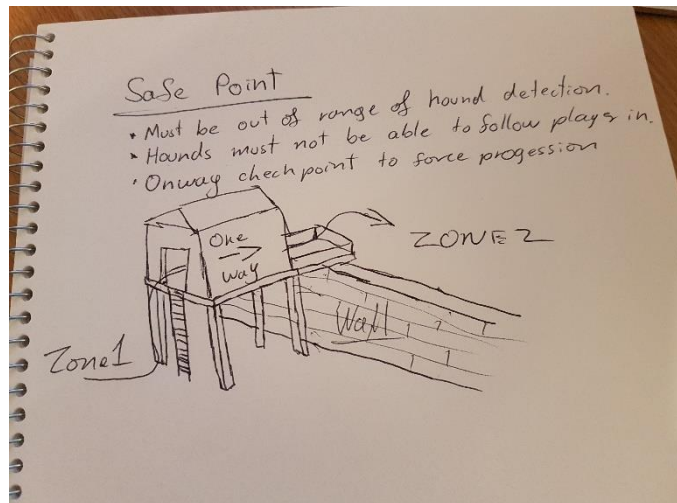 Safe Point
• Must be out of range of hound detection.
• Hounds must not be able to follow player in.
• Onway checkpoint to force progession
One
way
ZONE 2
Wall
Zone1